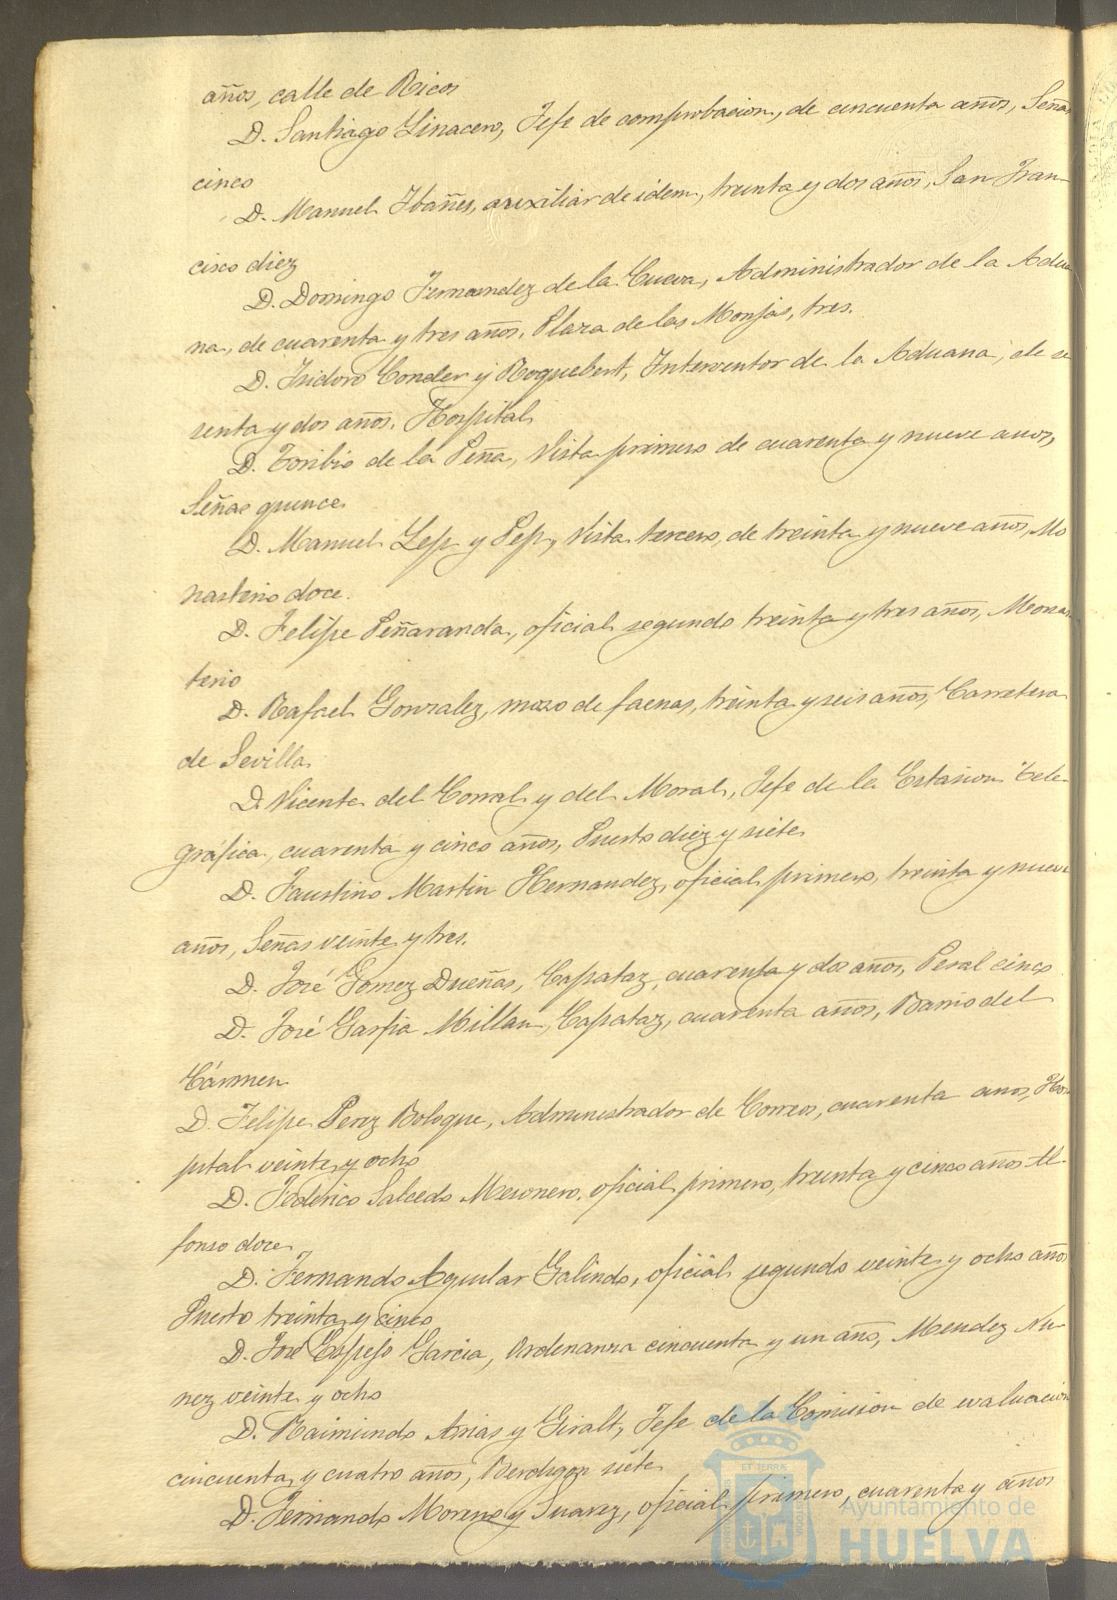 años, calle de Ricos
D. Santiago Linacero, Jefe de comprobacion, de cincuenta años, Señas
cinco
D. Manuel Ibañes, auxiliar de idem, treinta y dos años, San Fran-
cisco diez
D. Domingo Fernandez de la Cueva, Administrador de la Adua-
na, de cuarenta y tres años, Plaza de las Monjas, tres.
D. Isidoro Conder y Roquebert, Interventor de la Aduana, de se
senta y dos años, Hospital
D. Toribio de la Peña, Vista primero de cuarenta y nueve anos,
Señas quince
D. Manuel y Vista tercero, de treinta y nueve años, Mo
nasterio doce.
D. Felipe Peñaranda, oficial segundo treinta y tres años, Monas
terio
D. Rafael Gonzalez, mozo de faenas, treinta y seis años, Carretera
de Sevilla
D. Vicente del Corral y del Moral, Jefe de la Estasion Tele-
gráfica, cuarenta y cinco años, Puerto diez y siete
D. Faustino Martin Hernandez, oficial primero, treinta y nueve
años, Señas veinte y tres.
D. José Gomez Dueñas, Capataz, cuarenta y dos años, Peral cinco
D. José Garfia Millan, Capataz, cuarenta años, Barrio del
Cármen
D. Felipe Perez Bologue, Administrador de Correos, cuarenta anos, Hos
pital veinte y ocho
D. Federico Salcedo Mesonero, oficial primero, treinta y cinco años Al-
fonso doce
D. Fernando Aguilar Galindo, oficial segundo veinte y ocho años
Puerto treinta y cinco
D. José Espejo Garcia, Ordenanza cincuenta y un año, Mendez Nu-
nez veinte y ocho
D. Raimundo Arias y Giralt, Jefe de la Comision de evaluacion
cincuenta y cuatro años, Berdigon siete
D. Fernando Moreno y Suarez, oficial primero, cuarenta y años
Ayuntamiento de
HUELVA